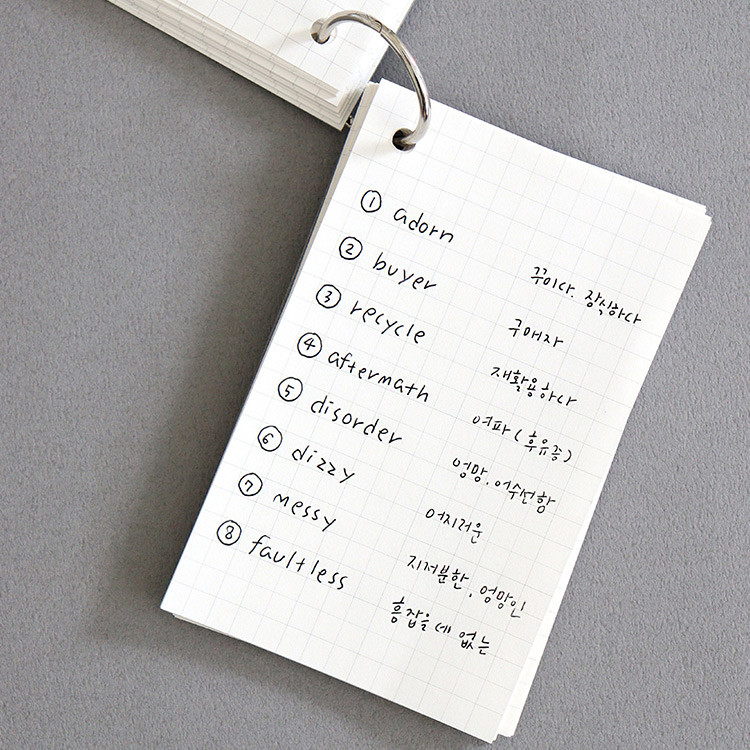 ① adorn 꾸미다. 장식하다
② buyer 구매자
③ recycle 재활용하다
④ aftermath 여파 (후유증)
⑤ disorder 엉망, 어수선함
⑥ dizzy 어지러운
⑦ messy 지저분한, 엉망인
⑧ faultless 흠잡을 데 없는